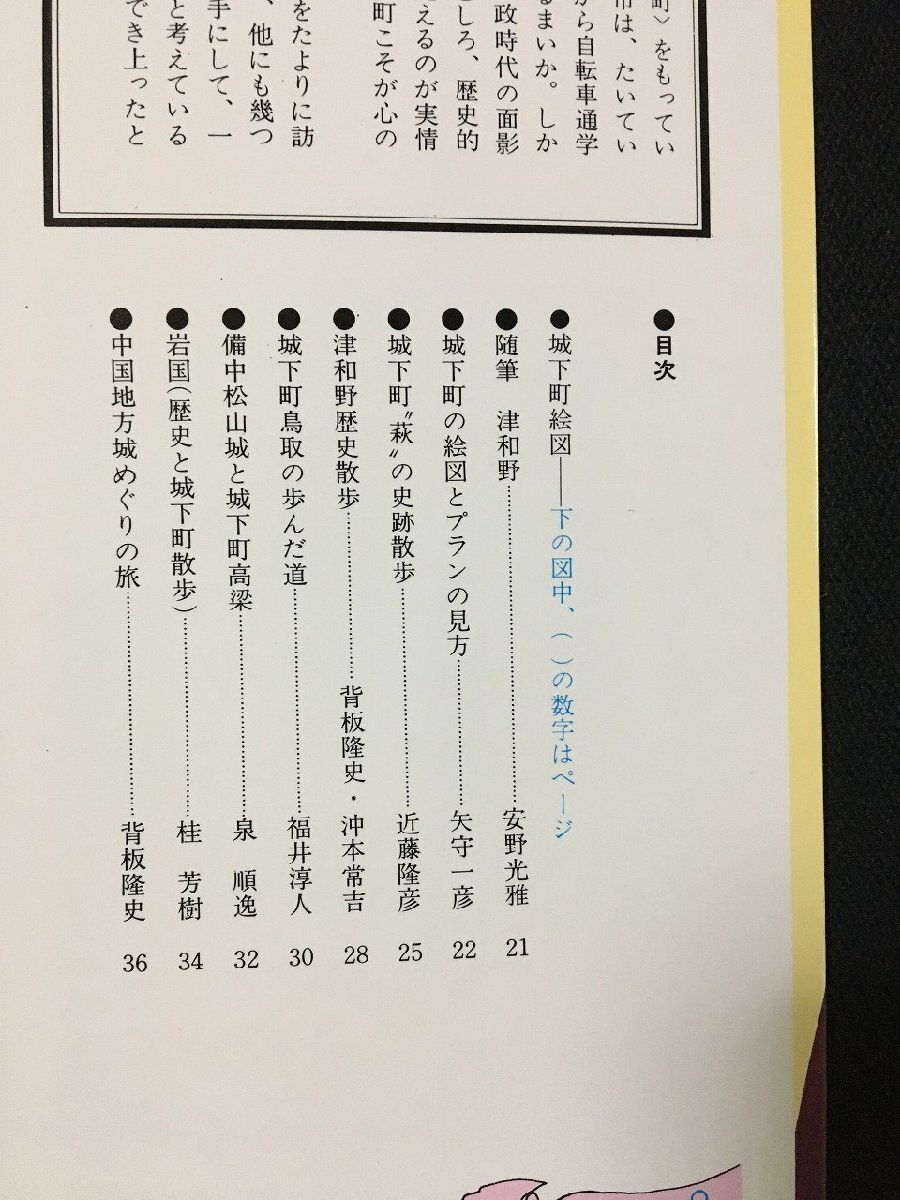 町〉をもってい
市は、たいてい
から自転車通学
るまいか。しか
政時代の面影
しろ、歴史的
えるのが実情
町こそが心の
をたよりに訪
、他にも幾つ
手にして、一
と考えている
でき上ったと
●目次
●城下町絵図――下の図中、（　）の数字はページ
●随筆　津和野……………………安野光雅 21
●城下町の絵図とプランの見方……………………矢守一彦 22
●城下町〝萩〟の史跡散歩……………………近藤隆彦 25
●津和野歴史散歩……………………背板隆史・沖本常吉 28
●城下町鳥取の歩んだ道……………………福井淳人 30
●備中松山城と城下町高梁……………………泉　順逸 32
●岩国（歴史と城下町散歩）……………………桂　芳樹 34
●中国地方城めぐりの旅……………………背板隆史 36